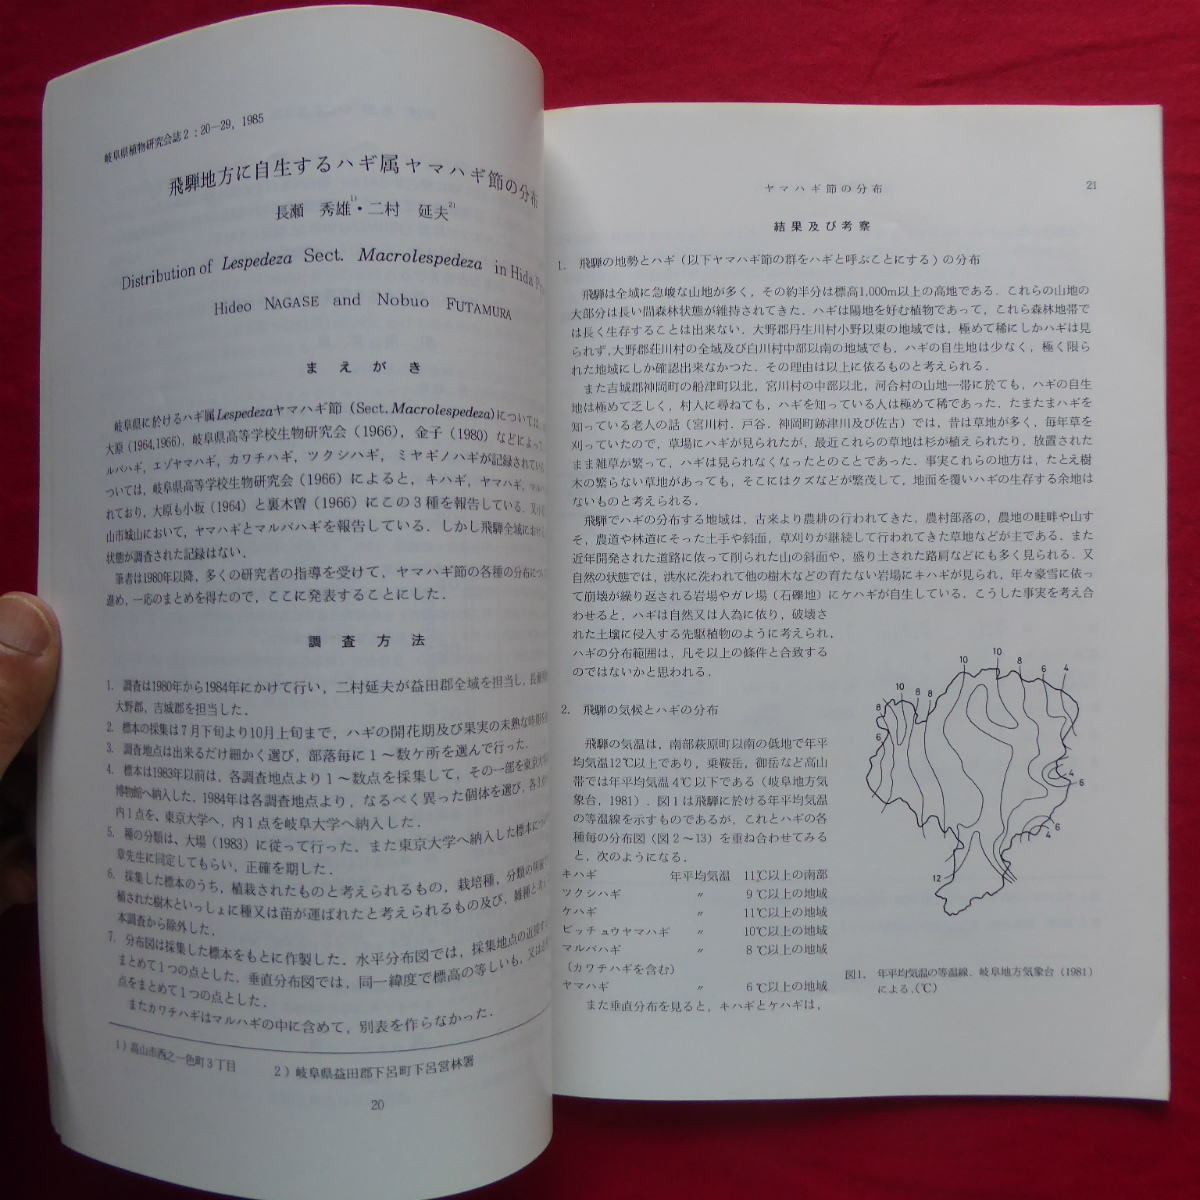 岐阜県植物研究会誌2：20—29, 1985
飛騨地方に自生するハギ属ヤマハギ節の分布
長瀬 秀雄1)・二村 延夫2)
Distribution of Lespedeza Sect. Macrolespedeza in Hida
Hideo NAGASE and Nobuo FUTAMURA
まえがき
岐阜県に於けるハギ属Lespedezaヤマハギ節（Sect. Macrolespedeza）については，
大原（1964,1966)，岐阜県高等学校生物研究会（1966)，金子（1980）などによって
ルバハギ，エゾヤマハギ，カワチハギ，ツクシハギ，ミヤギノハギが記録されてい
ついては，岐阜県高等学校生物研究会（1966）によると，キハギ，ヤマハギ，マル
れており，大原も小坂（1964）と裏木曽（1966）にこの3種を報告している．又
山市城山において，ヤマハギとマルバハギを報告している．しかし飛騨全域におけ
状態が調査された記録はない．
筆者は1980年以降，多くの研究者の指導を受けて，ヤマハギ節の各種の分布につ
進め，一応のまとめを得たので，ここに発表することにした．
調査方法
1. 調査は1980年から1984年にかけて行い，二村延夫が益田郡全域を担当し，長
大野郡，吉城郡を担当した．
2. 標本の採集は7月下旬より10月上旬まで，ハギの開花期及び果実の未熟な時期
3. 調査地点は出来るだけ細かく選び，部落毎に1〜数ケ所を選んで行った．
4. 標本は1983年以前は，各調査地点より1〜数点を採集して，その一部を東京大
博物館へ納入した．1984年は各調査地点より，なるべく異った個体を選び，各3
内1点を，東京大学へ，内1点を岐阜大学へ納入した．
5. 種の分類は，大場（1983）に従って行った．また東京大学へ納入した標本につ
章先生に同定してもらい，正確を期した．
6. 採集した標本のうち，植栽されたものと考えられるもの，栽培種，分類の
植された樹木といっしょに種又は苗が運ばれたと考えられるもの及び，雑種と
本調査から除外した．
7. 分布図は採集した標本をもとに作製した．水平分布図では，採集地点の近接
まとめて1つの点とした．垂直分布図では，同一緯度で標高の等しいも，又は
点をまとめて1つの点とした．
またカワチハギはマルハギの中に含めて，別表を作らなかった．
1）高山市西之一色町3丁目 2）岐阜県益田郡下呂町下呂営林署
20
ヤマハギ節の分布 21
結果及び考察
1. 飛騨の地勢とハギ（以下ヤマハギ節の群をハギと呼ぶことにする）の分布
飛騨は全域に急峻な山地が多く，その約半分は標高1,000m以上の高地である．これらの山地の
大部分は長い間森林状態が維持されてきた．ハギは陽地を好む植物であって，これら森林地帯で
は長く生存することは出来ない．大野郡丹生川村小野以東の地域では，極めて稀にしかハギは見
られず，大野郡荘川村の全域及び白川村中部以南の地域でも，ハギの自生地は少なく，極く限ら
れた地域にしか確認出来なかった．その理由は以上に依るものと考えられる．
また吉城郡神岡町の船津町以北，宮川村の中部以北，河合村の山地一帯に於ても，ハギの自生
地は極めて乏しく，村人に尋ねても，ハギを知っている人は極めて稀であった．たまたまハギを
知っている老人の話（宮川村．戸谷．神岡町跡津川及び佐古）では，昔は草地が多く，毎年草を
刈っていたので，草場にハギが見られたが，最近これらの草地は杉が植えられたり，放置された
まま雑草が繁って，ハギは見られなくなったとのことであった．事実これらの地方は，たとえ樹
木の繁らない草地があっても，そこにはクズなどが繁茂して，地面を覆いハギの生存する余地は
ないものと考えられる．
飛騨でハギの分布する地域は，古来より農耕の行われてきた．農村部落の，農地の畦畔や山す
そ，農道や林道にそった土手や斜面，草刈りが継続して行われてきた草地などが主である．また
近年開発された道路に依って削られた山の斜面や，盛り土された路肩などにも多く見られる．又
自然の状態では，洪水に洗われて他の樹木などの育たない岩場にキハギが見られ，年々豪雪に依っ
て崩壊が繰り返される岩場やガレ場（石礫地）にケハギが自生している．こうした事実を考え合
わせると，ハギは自然又は人為に依り，破壊さ
れた土壌に侵入する先駆植物のように考えられ，
ハギの分布範囲は，凡そ以上の條件と合致する
のではないかと思われる．
2. 飛騨の気候とハギの分布
飛騨の気温は，南部萩原町以南の低地で年平
均気温12℃以上であり，乗鞍岳，御岳など高山
帯では年平均気温4℃以下である（岐阜地方気
象台，1981)．図1は飛騨に於ける年平均気温
の等温線を示すものであるが，これとハギの各
種毎の分布図（図2〜13）を重ね合わせてみる
と，次のようになる．
キハギ 年平均気温 11℃以上の南部
ツクシハギ 〃 9℃以上の地域
ケハギ 〃 11℃以上の地域
ビッチュウヤマハギ 〃 10℃以上の地域
マルバハギ 〃 8℃以上の地域
（カワチハギを含む）
ヤマハギ 〃 6℃以上の地域
また垂直分布を見ると，キハギとケハギは，
10 10 8 6 4
8 10 8 8
6
4 6
4 6
12
図1. 年平均気温の等温線．岐阜地方気象台（1981）
による．(℃)